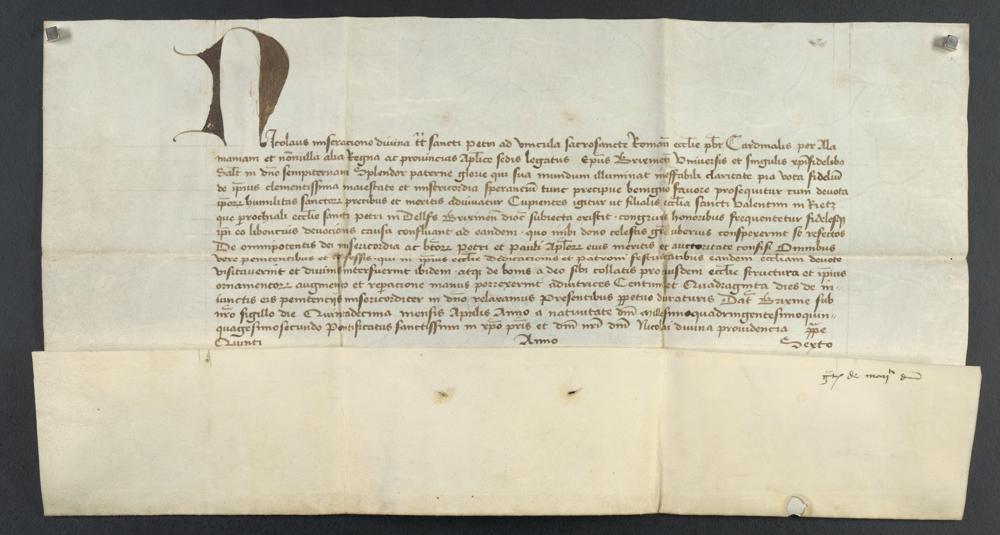 Nicolaus miseracione divina tt̃ sancti Petri ad vincula sacrosancte Romañ ecclie p̃br Cardinalis per Ala
maniam et nõnulla alia Regna ac provincias Apl̃ice sedis legatus Ep̃us Brixineñ Universis et singulis xp̃ifidelib9
Salt̃ in dño sempiternam Splendor paterne glorie qui sua mundum illuminat ineffabili claritate pia vota fidelium
de ip̃ius clementissima maiestate et misericordia sperancium tunc precipue benigno favore prosequitur cum devota
ip̃orꝝ humilitas sanctorꝝ precibus et meritis adiuvatur Cupientes igitur ut filialis ecclia sancti Valentini in Rietz
que parochiali ecclie sancti petri in Dellfs Brixineñ dioc̃ subiecta existit congruis honoribus frequentetur fidelesqꝫ
ip̃i eo libencius devocionis causa confluant ad eandem quo inibi dono celestis gr̃e uberius conspexerint se refectos
De omnipotentis dei misericordia ac bt̃orꝝ Petri et Pauli Apl̃orꝝ eius meritis et auctoritate confisi Omnibus
vere penitentibus et ꝯfessis qui in ip̃ius ecclie Dedicacionis et patroni festivitatibus eandem eccliam devote
visitaverint et divinis interfuerint ibidem atqꝫ de bonis a deo sibi collatis pro eiusdem ecclie structura et ip̃ius
ornamentorꝝ augmento et reparacione manus porrexerint adiutrices Centum et Quadraginta dies de in-
iunctis eis penitencijs misericorditer in dño relaxamus Presentibus ꝑpetuo duraturis Dat̃ Brixine sub
nr̃o sigillo die Quintadecima mensis Aprilis Anno a nativitate dñi Millesimoquadringentesimoquin-
quagesimosecundo Pontificatus sanctissimi in xp̃o pr̃is et dñi nr̃i dñi Nicolai divina providencia p̃pe
Quinti Anno Sexto